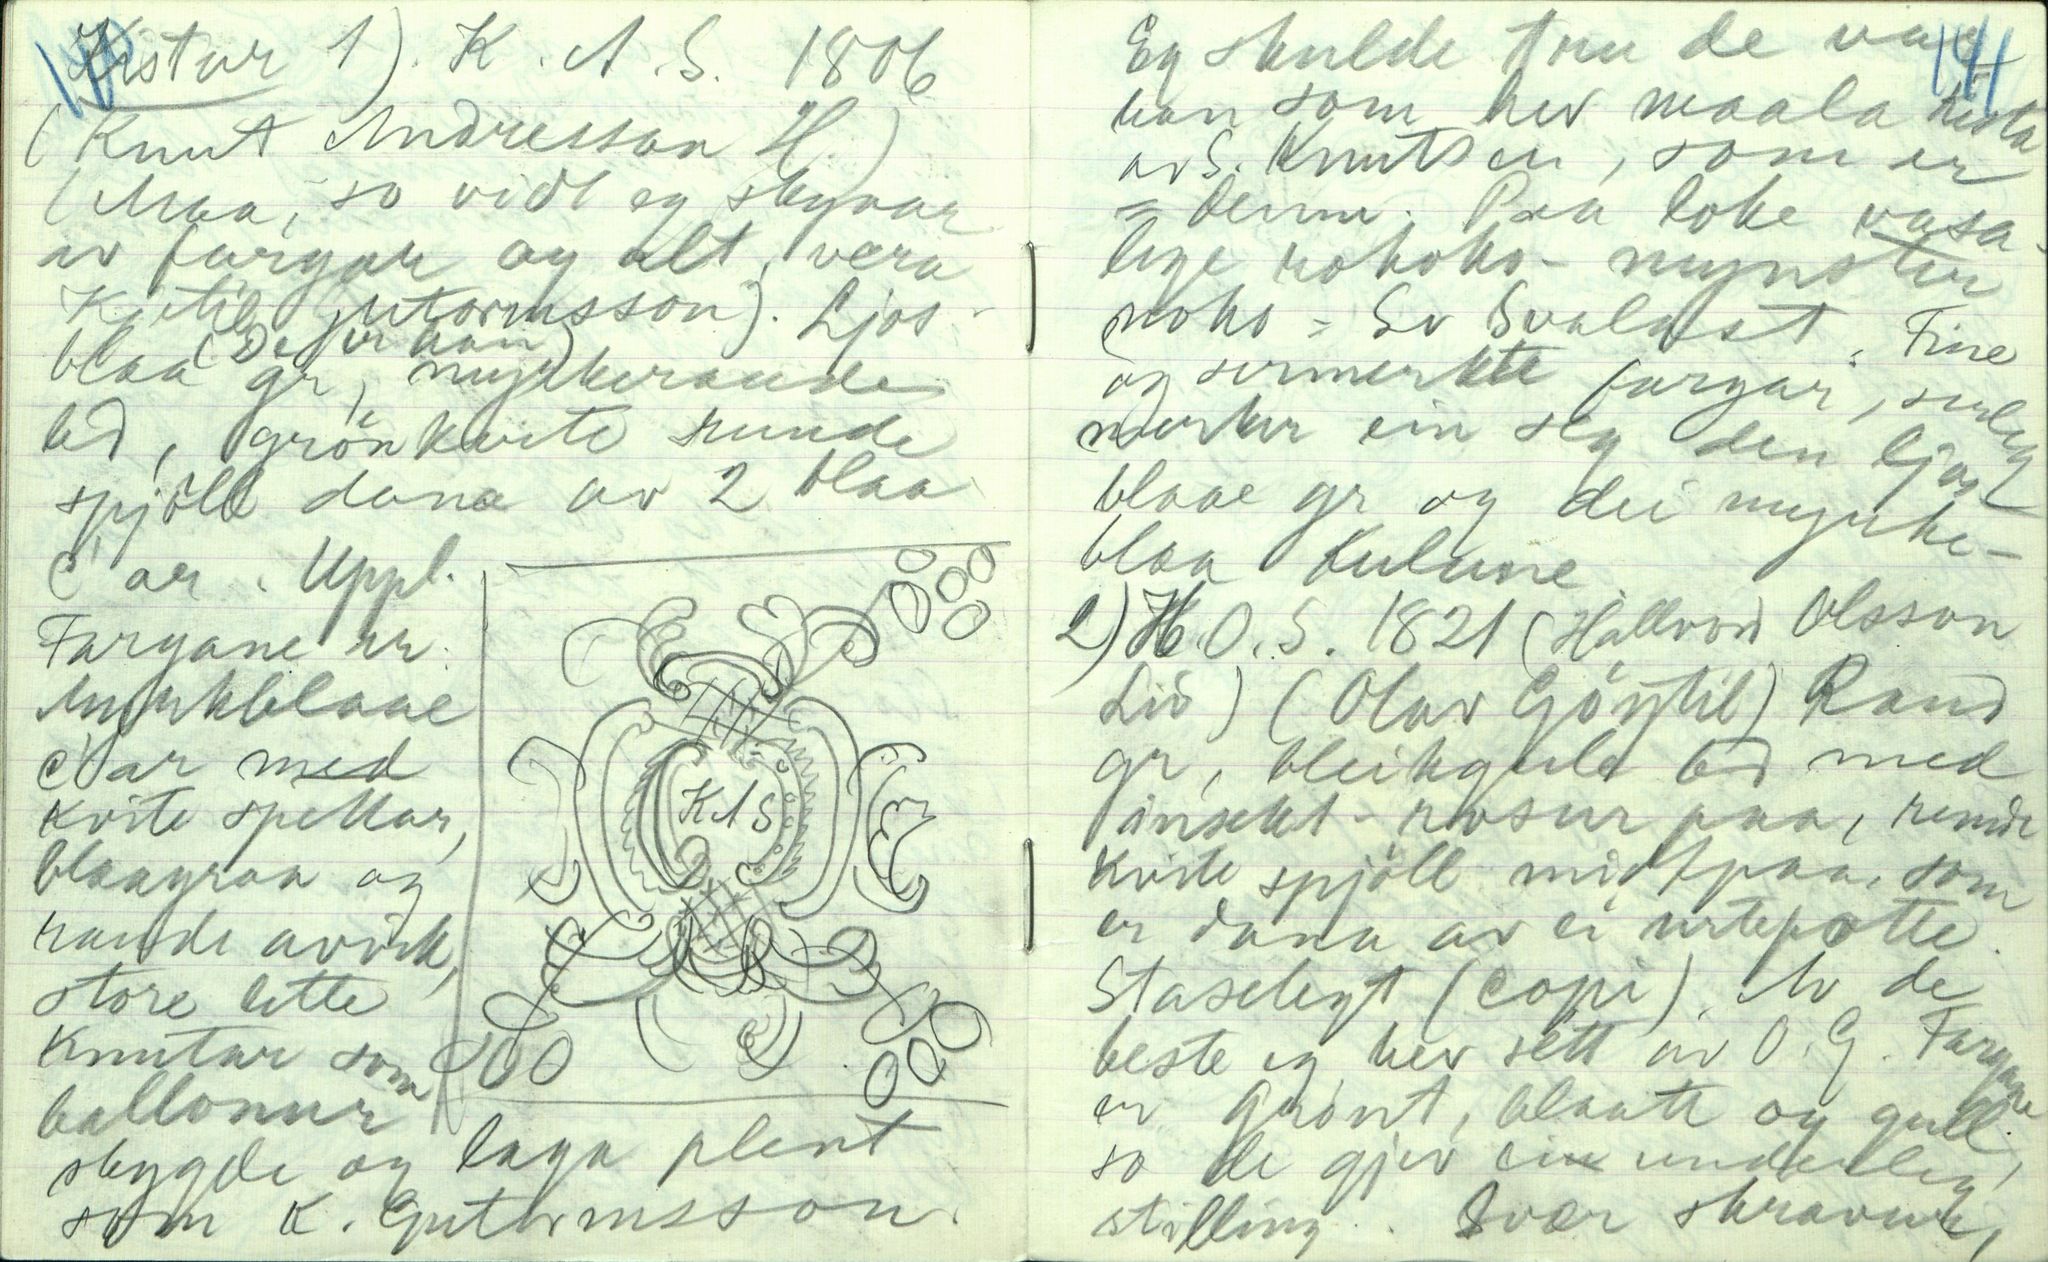 Kistur 1). K. A. S. 1806
(Knut Andresson H.)
(Maa, so vidt eg skynar
av fargar og alt, vera
Kjetil Gutormsson). Ljos-
(De er han)
blaa gr, myrkeraude
bd, grönkvite runde
spjöll dana av 2 blaa
C ar. Uppl.
Fargane er
Myrkblaae
C ar med
kvite spettar,
blaagraa og
raude avvik,
store lette
Knutar som
ballonur
skygde og laga plent
som K. Gutormsson.
K A S
141
Eg skulde tru de var
han som hev maala kista
av S. Knutsen, som er
= denne. Paa loke vasa-
lege rokoko- mynster
noko = Sv Svalast. Fine
og sermerkte fargar, serleg
merker ein seg den ljos
blaae gr og dei myrke-
blaa kulune.
2) H. O. S. 1821 (Hallvor Olsson
Lid) (Olav Göystil) Raud
gr, bleikgule bd med
insekt- rosur paa, runde
kvite spjöll midtpaa, som
er dana av ei urtepotte.
Staselegt (copi). Av de
beste eg hev sett av O. G. Fargane
er Grönt, blaatt og gull,
so de gjev ein underleg
stilling. Svær skravur,